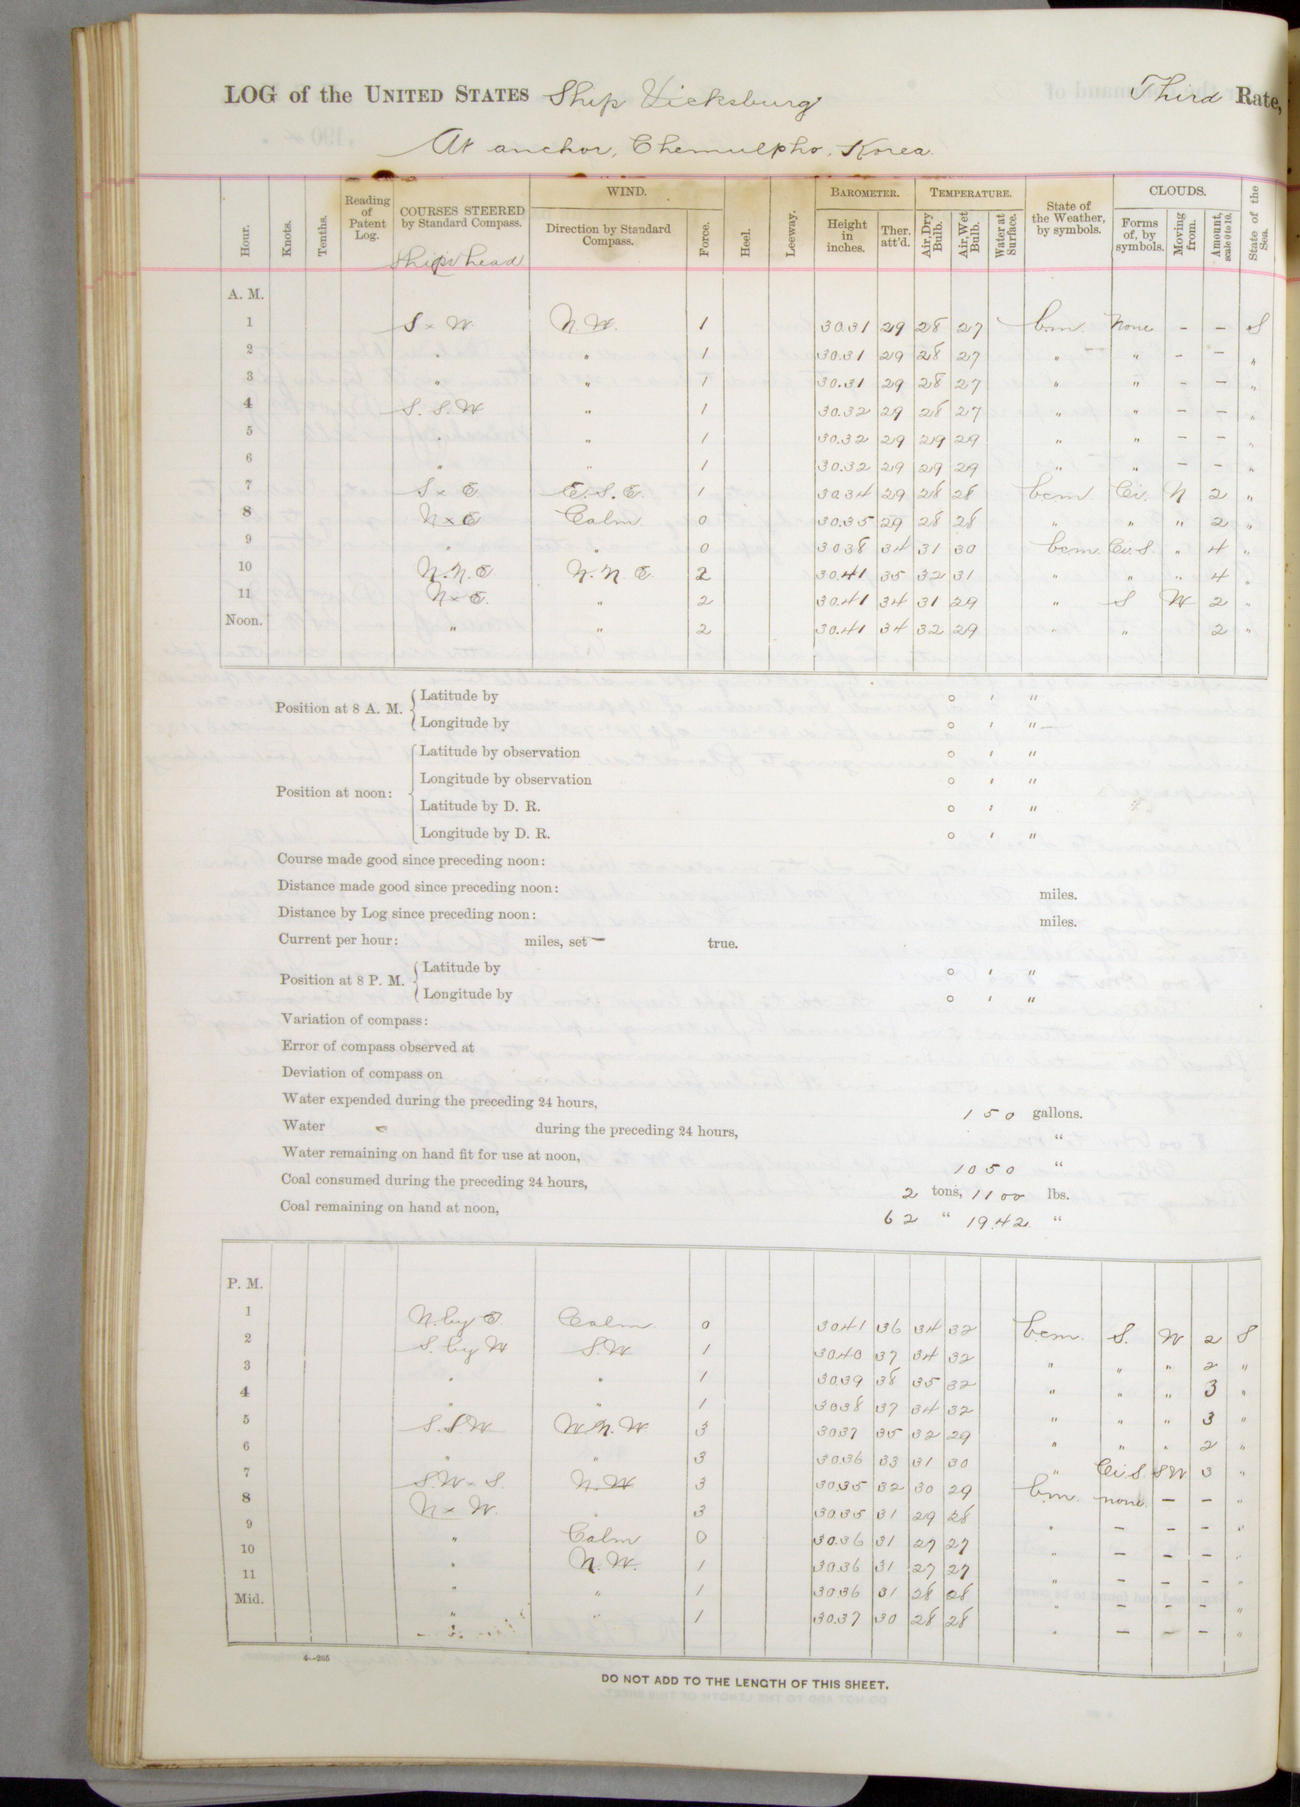 LOG of the UNITED STATES Ship Vicksburg Third Rate,
At anchor, Chemulpho, Korea.
Hour. Knots. Tenths. Reading of Patent Log. COURSES STEERED by Standard Compass. WIND. Direction by Standard Compass. Force. Heel. Leeway. BAROMETER. Height in inches. Ther. att'd. TEMPERATURE. Air, Dry Bulb. Air, Wet Bulb. Water at Surface. State of the Weather, by symbols. CLOUDS. Forms of, by symbols. Moving from. Amount, scale 0 to 10. State of the Sea.
Ships head
A. M.
1 S x W. N.W. 1 30.31 29 28 27 bcm. None - - S
2 " " 1 30.31 29 28 27 " " - - "
3 " " 1 30.31 29 28 27 " " - - "
4 S. S. W " 1 30.32 29 28 27 " " - - "
5 " " 1 30.32 29 29 29 " " - - "
6 " " 1 30.32 29 29 29 " " - - "
7 S x E. E. S. E. 1 30.34 29 28 28 bcm Ci. N 2 "
8 N x E Calm 0 30.35 29 28 28 " " " 2 "
9 " " 0 30.38 34 31 30 bcm. Ci.S. " 4 "
10 N. N. E N. N. E. 2 30.41 35 32 31 " " " 4 "
11 N x E. " 2 30.41 34 31 29 " S W 2 "
Noon. " " 2 30.41 34 32 29 " " 2 "
Position at 8 A. M. Latitude by ° ' "
Longitude by ° ' "
Position at noon: Latitude by observation ° ' "
Longitude by observation ° ' "
Latitude by D. R. ° ' "
Longitude by D. R. ° ' "
Course made good since preceding noon:
Distance made good since preceding noon: miles.
Distance by Log since preceding noon: miles.
Current per hour: miles, set true.
Position at 8 P. M. Latitude by ° ' "
Longitude by ° ' "
Variation of compass:
Error of compass observed at
Deviation of compass on
Water expended during the preceding 24 hours, 150 gallons.
Water during the preceding 24 hours, "
Water remaining on hand fit for use at noon, 1050 "
Coal consumed during the preceding 24 hours, 2 tons, 1100 lbs.
Coal remaining on hand at noon, 62 " 1942 "
P. M.
1 N. by E. Calm 0 30.41 36 34 32 bcm. S. W 2 S
2 S. by W S.W 1 30.40 37 34 32 " " " 2 "
3 " " 1 30.39 38 35 32 " " " 3 "
4 " " 1 30.38 37 34 32 " " " 3 "
5 S.S.W W.N.W. 3 30.37 35 32 29 " " " 2 "
6 " " 3 30.36 33 31 30 " Ci.S. SW 3 "
7 S.W x S. N.W 3 30.35 32 30 29 bm. none - - "
8 N x W. " 3 30.35 31 29 28 " - - - "
9 " Calm 0 30.36 31 27 27 " - - - "
10 " N.W. 1 30.36 31 27 27 " - - - "
11 " " 1 30.36 31 28 28 " - - - "
Mid. " " 1 30.37 30 28 28 " - - - "
4—265
DO NOT ADD TO THE LENGTH OF THIS SHEET.